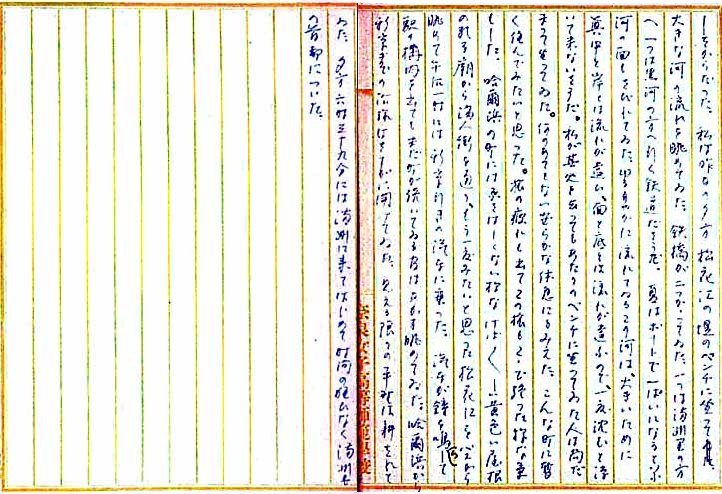 しそからだった。私は昨年の夕方松花江の堤のベンチに坐って
大きな河の流れを眺めてゐた。鉄橋が二つかゝってゐた。一つは満洲里の方
へ一つは黒河の方へ行く鉄道ださうだ。夏はボートで一ぱいになると云ふ
河の面もさびれてゐた。ゆるやかに流れてゐるこの河は、大きいために
真中と岸とは流れが違ひ、面と底とは流れが違ふので、一度沈むと浮
いて来ないさうだ。私が其処を立ってもあたりのベンチに坐ってゐた人は尚だ
まって坐ってゐた。何のあてもない安らかな休息にもみえた。こんな町に暫
く住んでみたいと思った。旅の疲れも出てこの旅もこゝで終った様な気
もした。哈爾浜の町には柔らしくない様なけばけばしい黄色い屋根
のある廟から満人街を通り、もう一度みたいと思った松花江を
眺めて午后一時には新京行きの汽車に乗った。汽車が鐘を鳴して
駅の構内を出てもまだ町が続いてゐる
新京までの沿線はさすがに開けてゐた。見える限りの平野は耕されて
ゐた。夕方六時三十九分には満洲に来てはじめて時間の狂ひなく満洲
の首都についた。
奈良女子高等師範学校